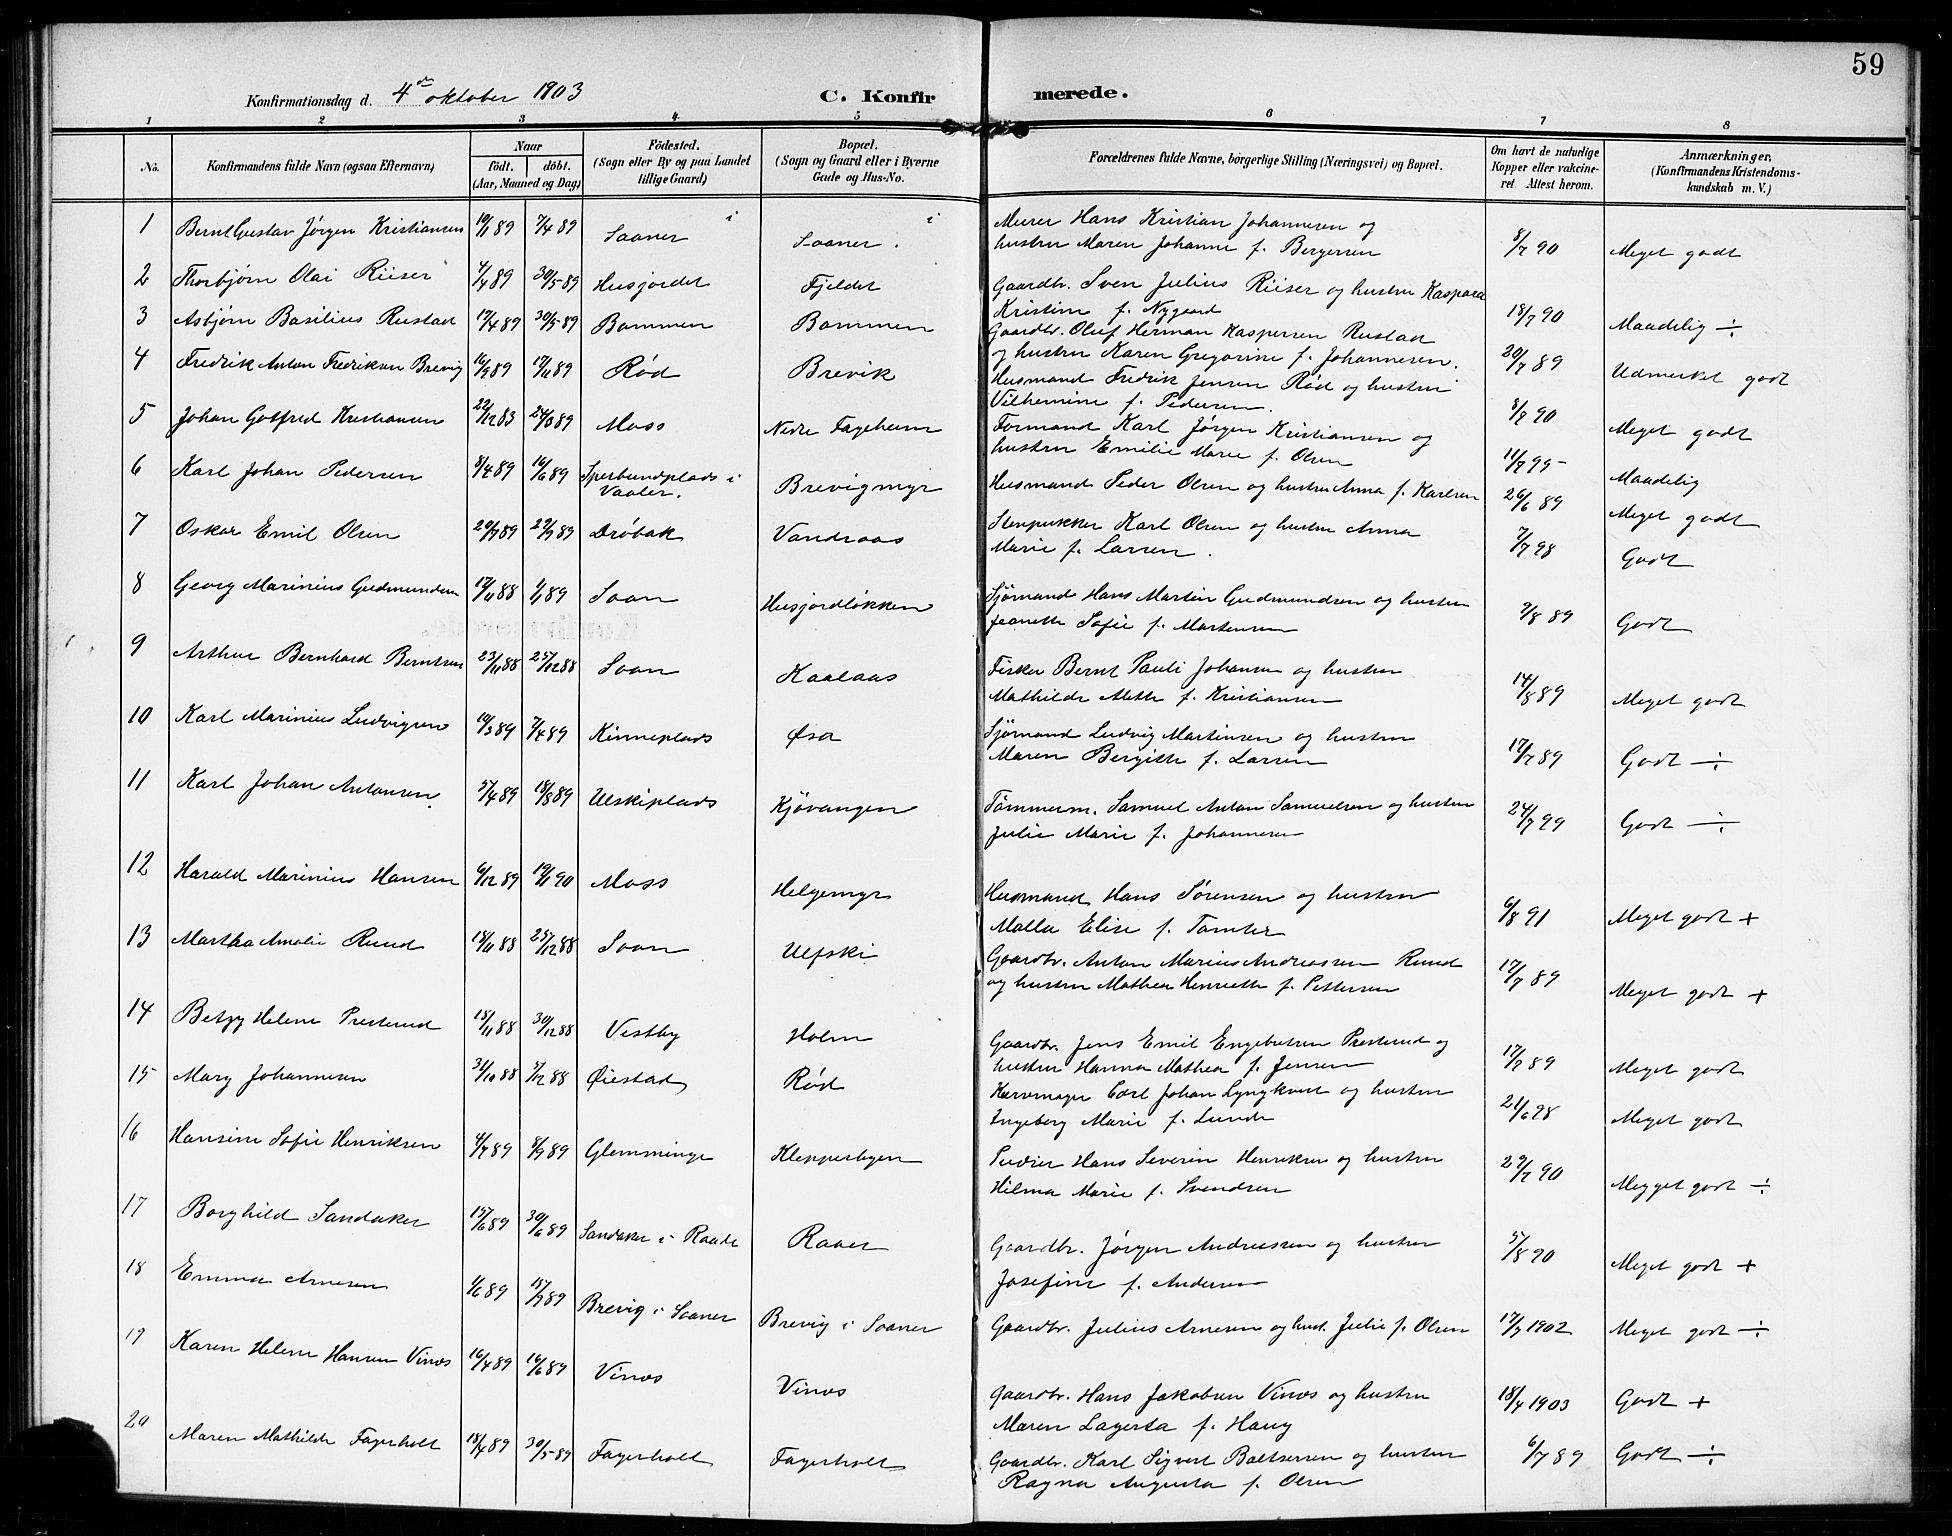 59
Konfirmationsdag d. 4de oktober 1903 C. Konfirmerede.
1 2 3 4 5 6 7 8
No. Konfirmandens fulde Navn (ogsaa Efternavn) Naar födt. döbt. (Aar, Maaned og Dag) Födested. (Sogn eller By og paa Landet tillige Gaard) Bopæl. (Sogn og Gaard eller i Byerne Gade og Hus-No. Forældrenes fulde Navne, borgerlige Stilling (Næringsvei) og Bopæl. Om havt de naturlige Kopper eller vakcineret Attest herom. Anmærkninger. (Konfirmandens Kristendomskundskab m. V.)
1 Bernt Gustav Jørgen Kristiansen 7/4 89 Saaner Saaner. Murer Hans Kristian Johannesen og
hustru Maren Johanne f. Bergersen 8/7 90 Meget godt
2 Thorbjørn Olai Riiser 4/4 89 30/5 89 Husjordet Fjeldet Gaardbr. Sven Julius Riiser og hustru Kaspara
Kristine f. Nygaard 18/7 90 Maadelig ÷
3 Asbjørn Basilius Rustad 19/4 89 30/5 89 Bommen Bommen Gaardbr. Oluf Herman Kaspersen Rustad
og hustru Karen Gregorine f. Johannesen. 20/7 89 Udmerket godt
4 Fredrik Anton Fredriksen Brevig 16/9 89 17/11 89 Rød Brevik Husmand Fredrik Jensen Rød og hustru
Vilhemine f. Pedersen. 8/7 90 Meget godt
5 Johan Gotfred Kristiansen Moss Nedre Fageheim Formand Karl Jørgen Kristiansen og
hustru Emilie Marie f. Olsen 11/7 95 Maadelig
6 Karl Johan Pedersen 8/4 89 16/6 89 Sperbundplads i
Vaaler. Brevigmyr Husmand Peder Olsen og hustru Anna f. Karlsen 26/6 89 Meget godt
7 Oskar Emil Olsen 20/7 89 29/9 89 Drøbak Vandraas Stenpukker Karl Olsen og hustru Anna
Marie f. Larsen. 7/7 98 Godt
8 Georg Marinius Gudmundsen 17/11 88 1/1 89 Soon Husjordløkken Sjømand Hans Martin Gudmundsen og hustru
Jeanette Sofie f. Martensen 9/8 89 Godt
9 Arthur Bernhard Berntsen 23/11 88 25/12 88 Soon Kaalaas Fisker Bernt Pauli Johansen og hustru
Mathilde Mette f. Kristiansen 14/8 89 Meget godt
10 Karl Marinius Ludvigsen 10/3 89 7/4 89 Kinneplads Øsa Sjømand Ludvig Martinsen og hustru
Maren Bergitte f. Larsen 17/7 89 Godt ÷
11 Karl Johan Antonsen. 5/4 89 18/8 89 Ulskiplads Kjøvangen Tømmerm. Samuel Anton Samuelsen og hustru
Julie Marie f. Johannesen 24/7 99 Godt ÷
12 Harald Marinius Hansen 6/12 89 19/1 90 Moss Helgemyr Husmand Hans Sørensen og hustru
Malla Elise f. Tomter 6/8 91 Meget godt +
13 Martha Amalie Rund 18/11 88 25/12 88 Soon Ulfski Gaardbr. Anton Marius Andreassen Rund
og hustru Mathea Henriette f. Pettersen 17/7 89 Meget godt +
14 Betzy Helene Presterud 18/11 88 30/12 88 Vestby Holm Gaardbr. Jens Emil Engebretsen Presterud og
hustru Hanna Mathea f. Jensen 17/7 89 Meget godt
15 Mary Johannesen 31/10 88 Øiestad Rød Karvmager Carl Johan Lyngkvist og hustru
Ingeborg Marie f. Lunde 21/6 98 Meget godt
16 Hansine Sofie Henriksen 4/7 89 8/9 89 Glemminge Klepperbyen Pudser Hans Severin Henriksen og hustru
Hilma Marie f. Svendsen 29/7 90 Megget godt ÷
17 Borghild Sandaker 15/6 89 30/6 89 Sandaker i Raade Raaer Gaardbr. Jørgen Andreassen og hustru
Josefine f. Andersen 5/8 90 Meget godt +
18 Emma Arnesen 1/6 89 Brevig i Saaner Brevig i Saaner Gaardbr. Julius Arnesen og hust. Julie f. Olsen 17/7 1902 Meget godt ÷
19 Karen Helene Hansen Vinæs 16/4 89 16/6 89 Vinæs Vinæs Gaardbr. Hans Jakobsen Vinæs og hustru
Maren Lagerta f. Haug 18/4 1903 Godt +
20 Maren Mathilde Fagerholt 18/4 89 30/5 89 Fagerholt Fagerholt Gaardbr. Karl Sigvert Baltsersen og hustru
Ragna Augusta f. Olsen 6/7 89 Godt ÷